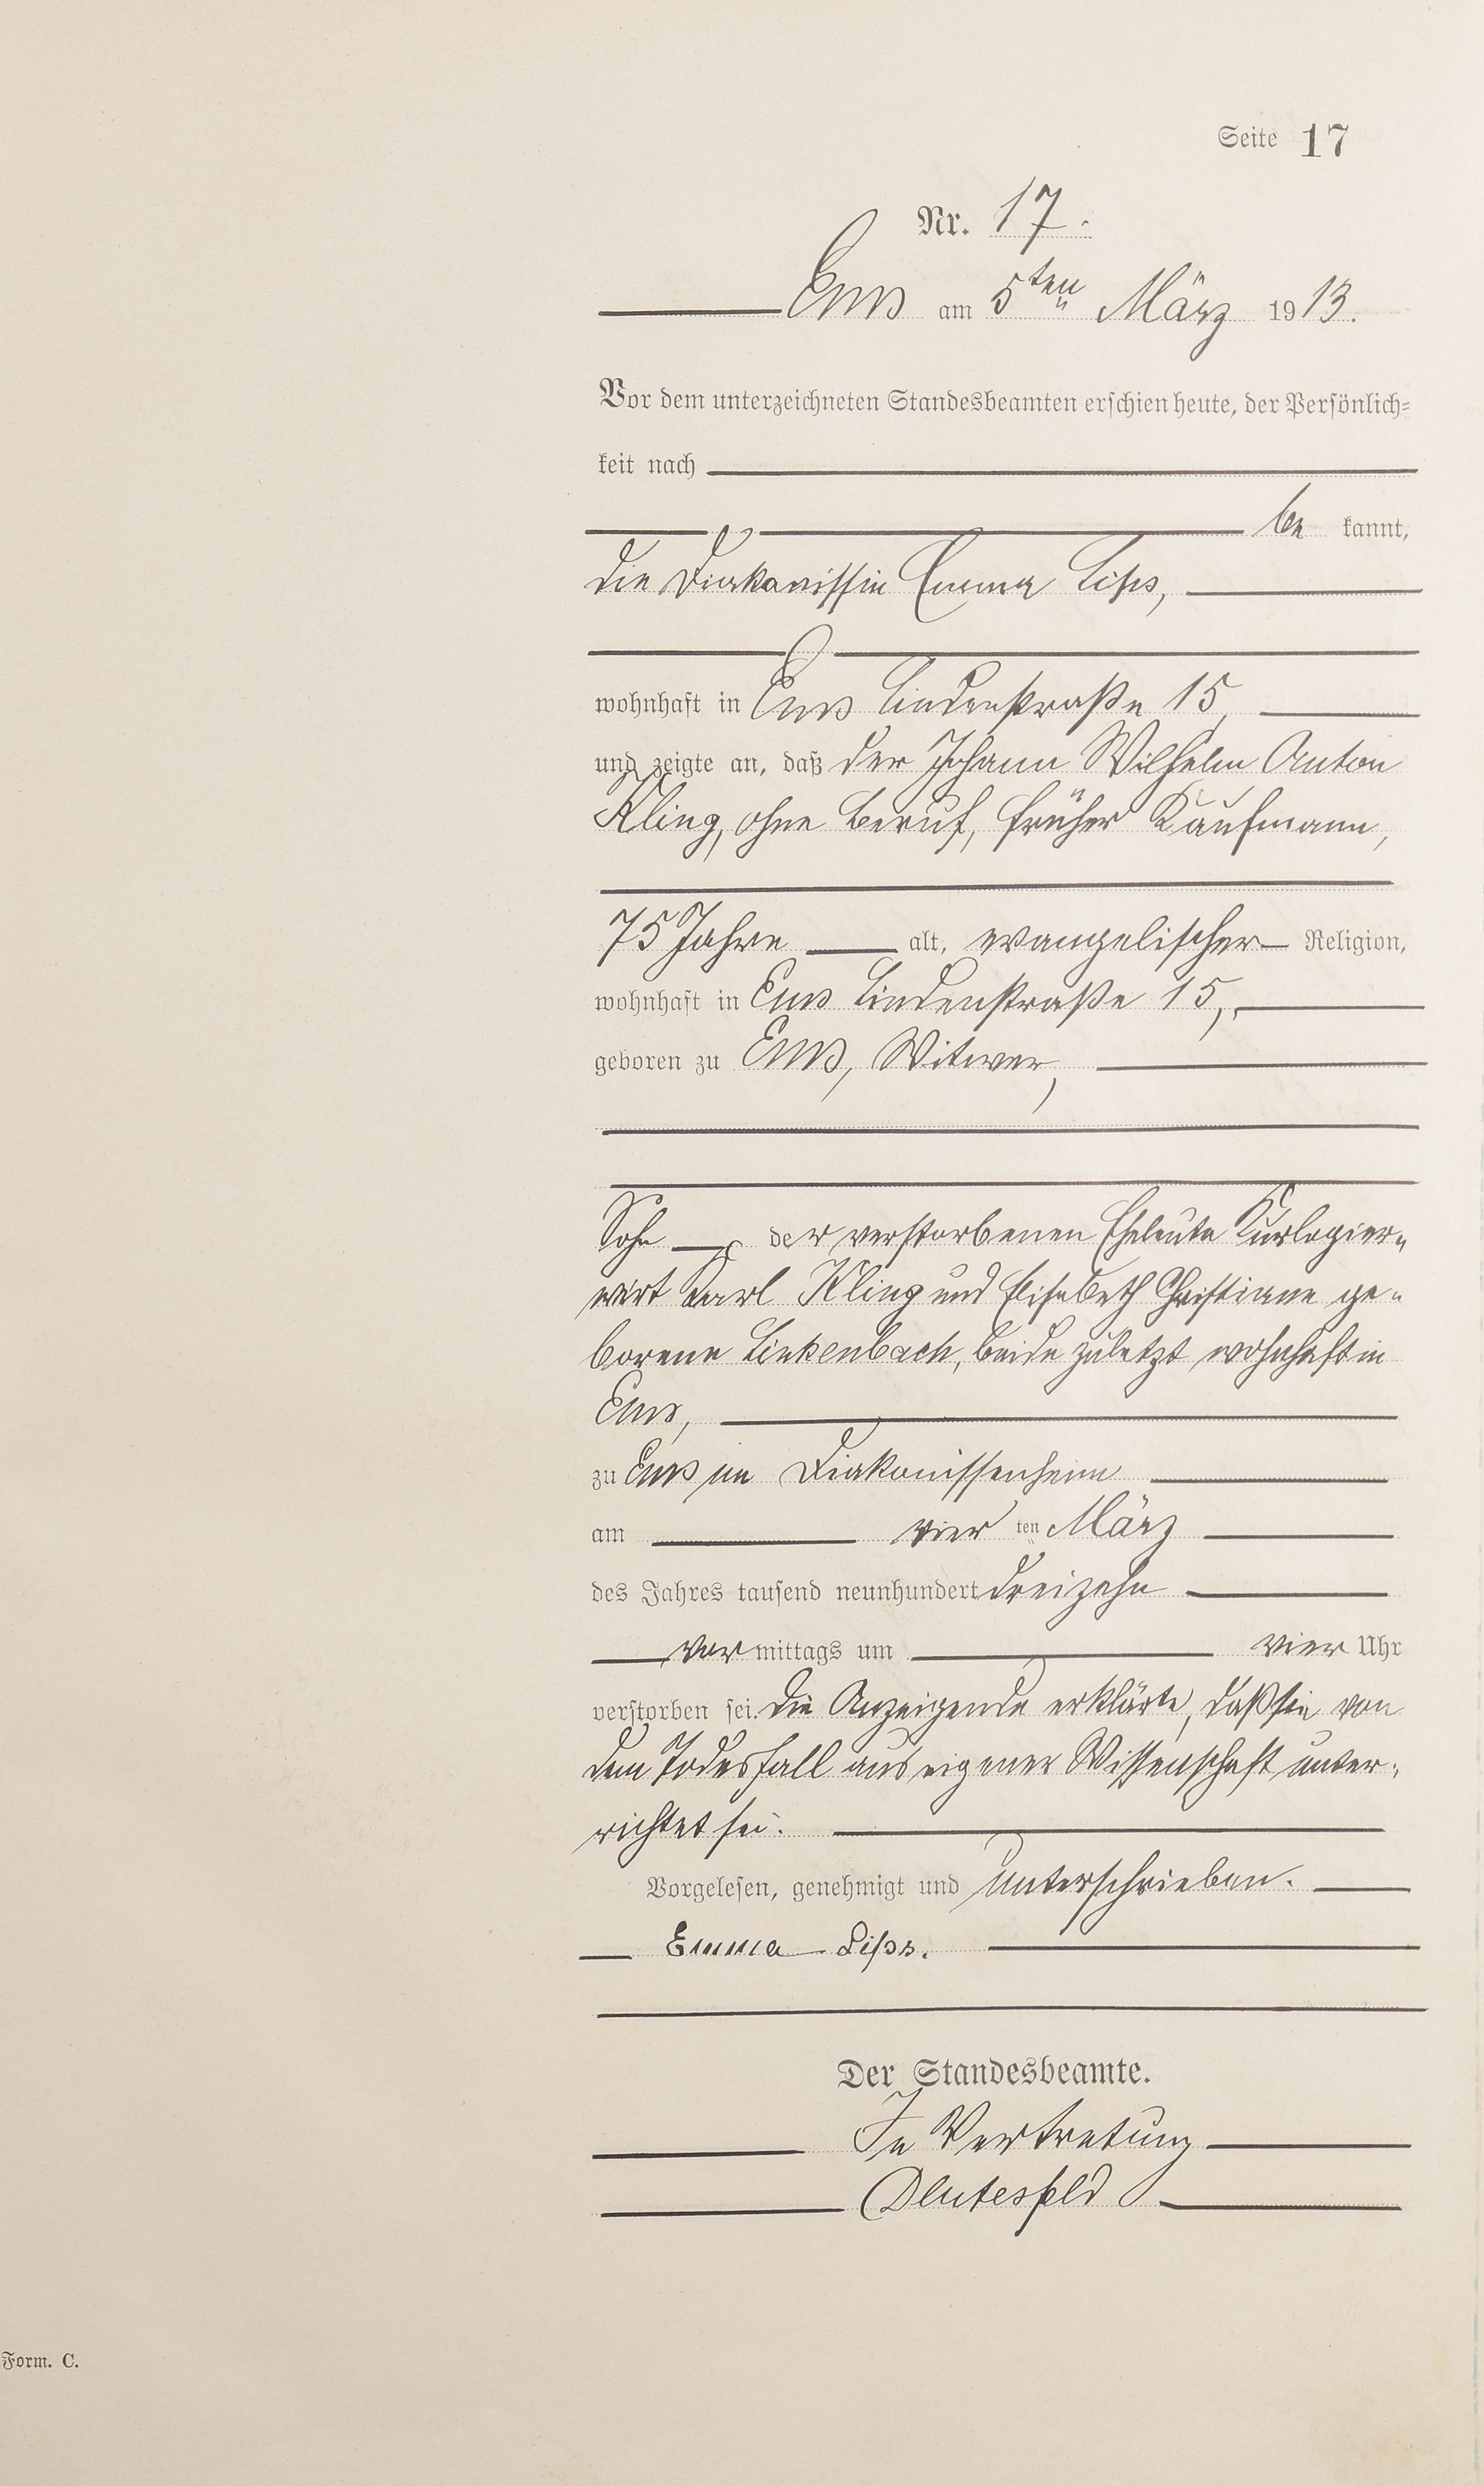 Seite 17
Nr. 17.
Ems am 5ten März 1913.
Vor dem unterzeichneten Standesbeamten erschien heute, der Persönlich=
keit nach
be kannt,
die Diakonissin Emma Lips,
wohnhaft in Ems Lindenstraße 15,
und zeigte an, daß der Johann Wilhelm Anton
Kling, ohne Beruf, früher Kaufmann,
75 Jahre alt, evangelischer Religion,
wohnhaft in Ems Lindenstraße 15,
geboren zu Ems, Witwer,
Sohn der verstorbenen Eheleute Kurlogier-
wirt Karl Kling und Elisabeth Christiane ge-
borene Linkenbach, beide zuletzt wohnhaft in
Ems,
zu Ems im Diakonissenheim
am vier ten März
des Jahres tausend neunhundert dreizehn
vor mittags um vier Uhr
verstorben sei. Die Anzeigende erklärte, daß sie von
dem Todesfall aus eigener Wissenschaft unter-
richtet sei.
Vorgelesen, genehmigt und unterschrieben.
Emma Lips.
Der Standesbeamte.
In Vertretung
Form. C.